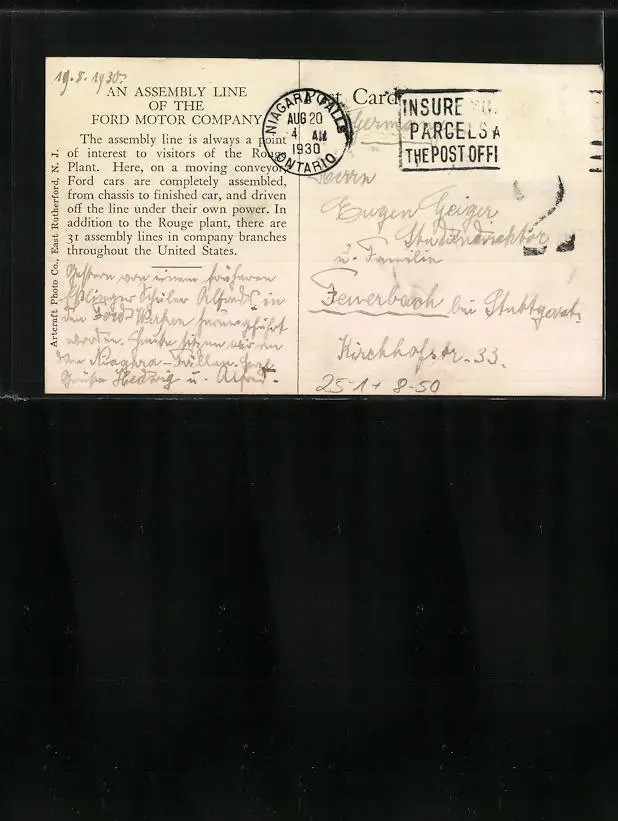 19.8.1930.
AN ASSEMBLY LINE
OF THE
FORD MOTOR COMPANY
The assembly line is always a point
of interest to visitors of the Rouge
Plant. Here, on a moving conveyor,
Ford cars are completely assembled,
from chassis to finished car, and driven
off the line under their own power. In
addition to the Rouge plant, there are
31 assembly lines in company branches
throughout the United States.
Artcraft Photo Co., East Rutherford, N. J.
Gestern von einem früheren
Eßlinger Schüler Alfreds in
den Ford Werken herumgeführt
worden. Heute sitzen wir an
den Niagara-Fällen. Herzl.
Grüße Hedwig u. Alfred.
Post Card
NIAGARA FALLS
AUG 20
4 AM
1930
ONTARIO
INSURE
PARCELS A
THE POST OFFI
Germany
Herrn
Eugen Geiger
Studiendirektor
u. Familie
Feuerbach bei Stuttgart.
Kirchhofstr. 33.
25-1+ 8-50